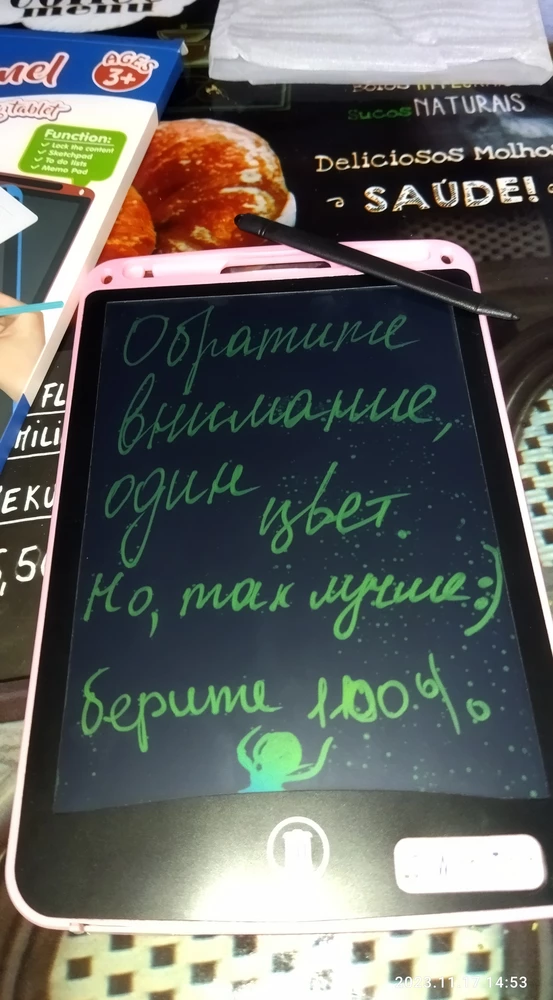 menu
AGES
3+
tablet
Function:
✓ Lock the content
✓ Sketchpad
✓ To do lists
✓ Memo Pad
Sucos NATURAIS
Deliciosos Molhos
SAÚDE!
Обратите
внимание,
один
цвет.
Но, так лучше:)
берите 100%
14:53